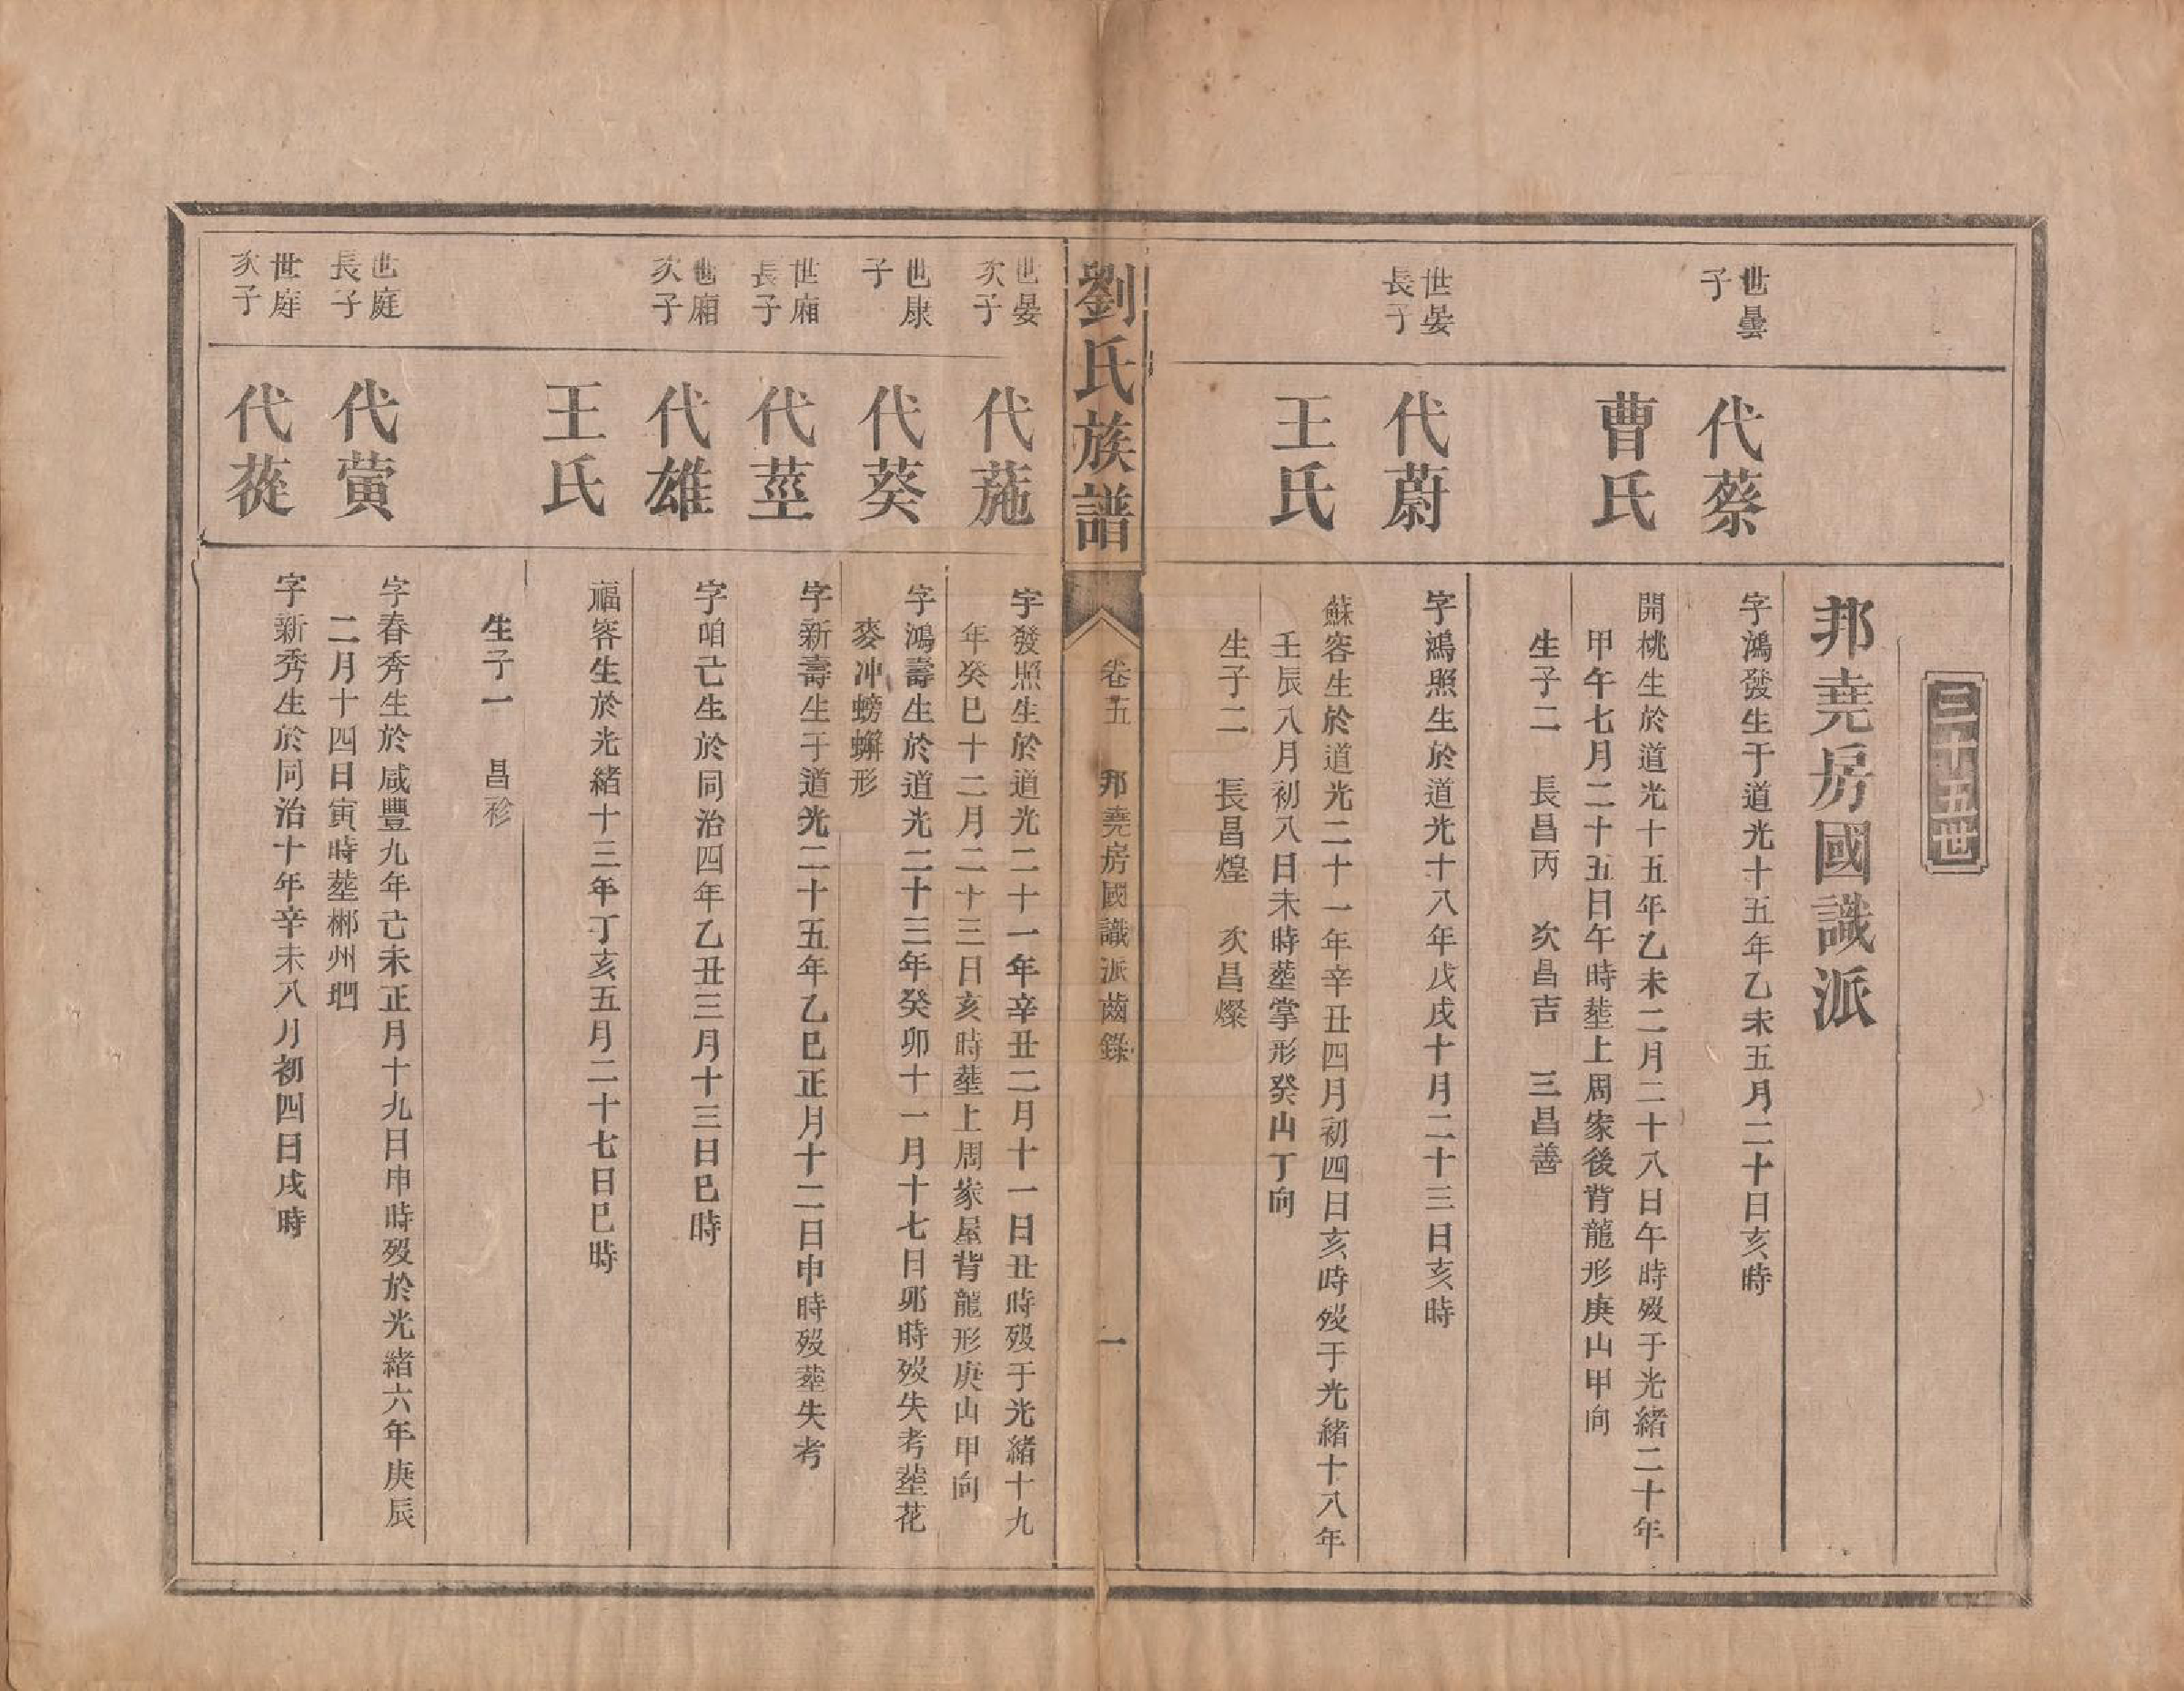 三十五世
邦堯房國識派
世曇子
代蔡
字鴻發生于道光十五年乙未五月二十日亥時
曹氏
開桃生於道光十五年乙未二月二十八日午時歿于光緒二十年
甲午七月二十五日午時塟上周家後背龍形庚山甲向
生子二 長昌丙 次昌吉 三昌善
世晏長子
代蔚
字鴻照生於道光十八年戊戌十月二十三日亥時
王氏
蘇容生於道光二十一年辛丑四月初四日亥時歿于光緒十八年
壬辰八月初八日未時塟掌形癸山丁向
生子二 長昌煌 次昌燦
劉氏族譜
卷五 邦堯房國識派齒錄 一
世晏次子
代葹
字發照生於道光二十一年辛丑二月十一日丑時歿于光緒十九
年癸巳十二月二十三日亥時塟上周家屋背龍形庚山甲向
世康子
代葵
字鴻壽生於道光二十三年癸卯十一月十七日卯時歿失考塟花
麥冲螃蠏形
世廂長子
代莖
字新壽生于道光二十五年乙巳正月十二日申時歿塟失考
世廂次子
代雄
字咱亡生於同治四年乙丑三月十三日巳時
王氏
福容生於光緒十三年丁亥五月二十七日巳時
生子一 昌袗
世庭長子
代黃
字春秀生於咸豐九年亡未正月十九日申時歿於光緒六年庚辰
二月十四日寅時塟郴州
世庭次子
代蓯
字新秀生於同治十年辛未八月初四日戌時